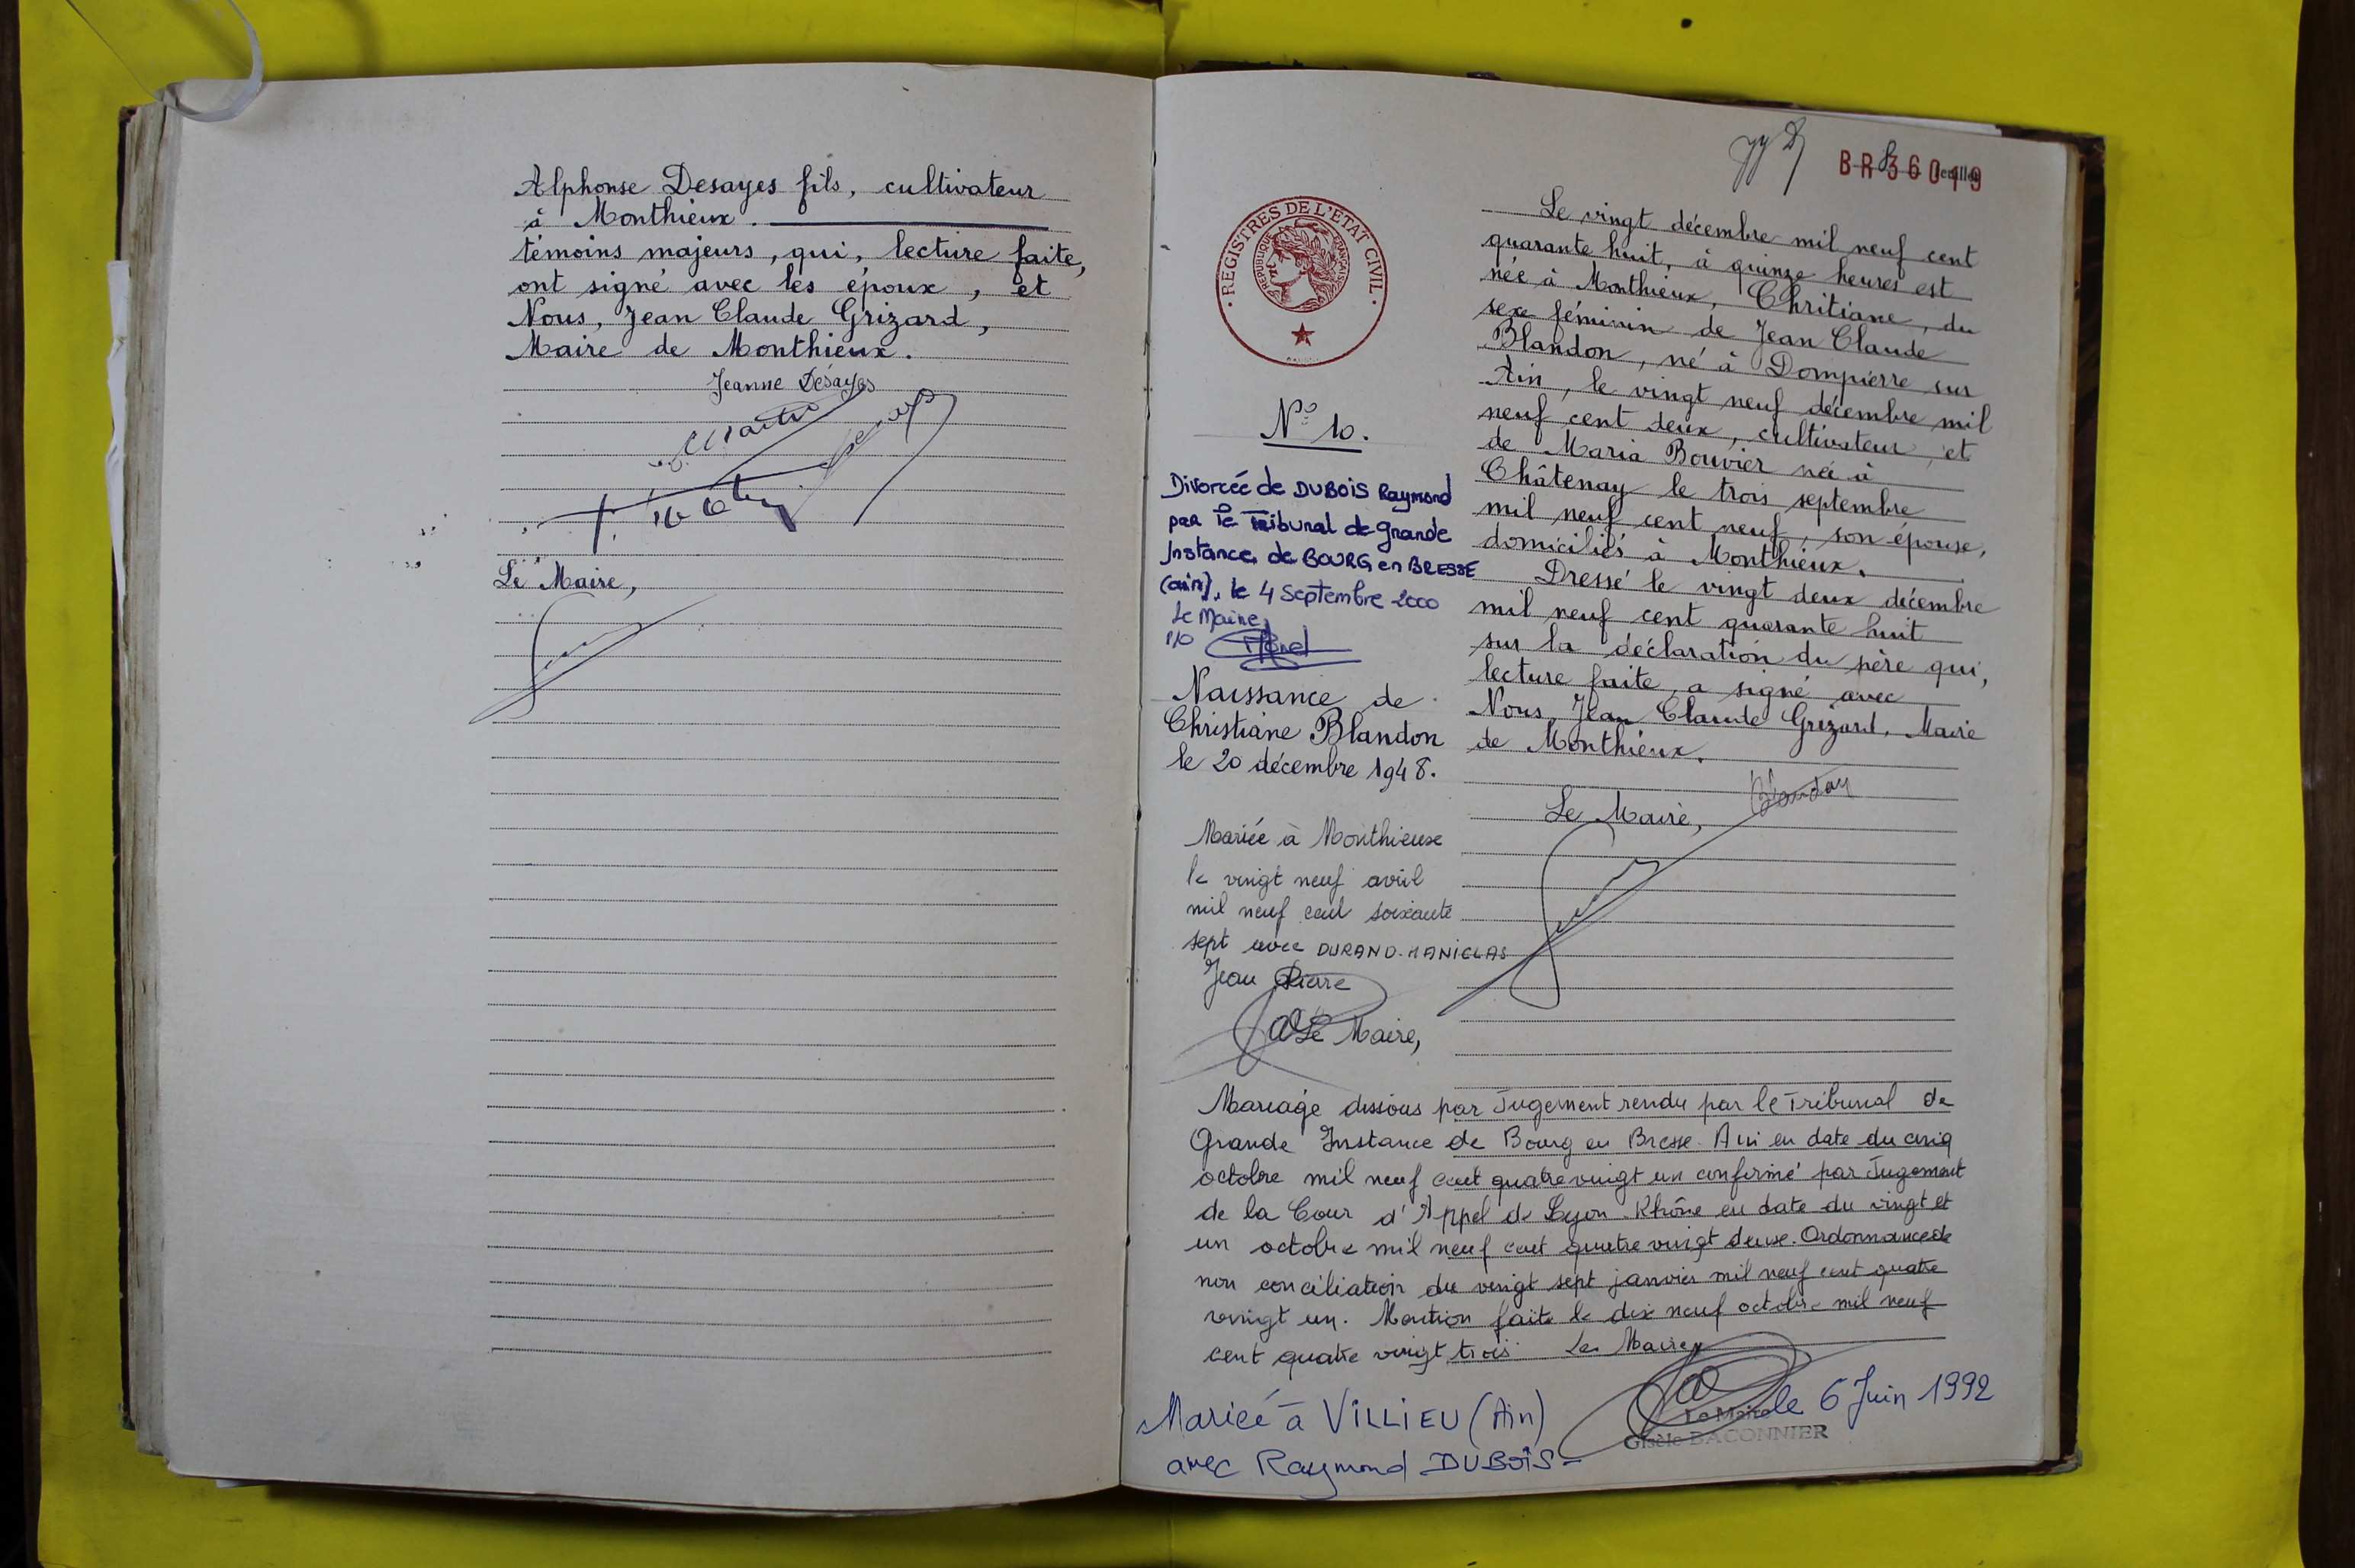 Alphonse Desayes fils, cultivateur
à Monthieux.
témoins majeurs, qui, lecture faite,
ont signé avec les époux, et
Nous, Jean Claude Grizard,
Maire de Monthieux.
Jeanne Desayes
Le Maire,
BR 36019
REGISTRES DE L'ETAT CIVIL
REPUBLIQUE FRANÇAISE
N° 10.
Divorcée de DUBOIS Raymond
par le Tribunal de Grande
Instance de BOURG en BRESSE
(ain), le 4 Septembre 2000
Le Maire,
Naissance de
Christiane Blandon
le 20 décembre 1948.
Mariée à Monthieux
le vingt neuf avril
mil neuf cent soixante
sept avec DURAND-MANICLAS
Jean Pierre
Le Maire,
Le vingt décembre mil neuf cent
quarante huit, à quinze heures est
née à Monthieux, Chritiane, du
sexe féminin de Jean Claude
Blandon, né à Dompierre sur
Ain, le vingt neuf décembre mil
neuf cent deux, cultivateur, et
de Maria Bouvier née à
Châtenay le trois septembre
mil neuf cent neuf, son épouse,
domiciliés à Monthieux.
Dressé le vingt deux décembre
mil neuf cent quarante huit
sur la déclaration du père qui,
lecture faite, a signé avec
Nous, Jean Claude Grizard, Maire
de Monthieux.
Blandon
Le Maire,
Mariage dissous par Jugement rendu par le Tribunal de
Grande Instance de Bourg en Bresse. Ain en date du cinq
octobre mil neuf cent quatre vingt un confirmé par Jugement
de la Cour d'Appel de Lyon. Rhône en date du vingt et
un octobre mil neuf cent quatre vingt deux. Ordonnance de
non conciliation du vingt sept janvier mil neuf cent quatre
vingt un. Mention faite le dix neuf octobre mil neuf
cent quatre vingt trois. Le Maire,
Mariée à VILLIEU (Ain) le 6 Juin 1992
avec Raymond DUBOIS-
Le Maire
Gisèle BACONNIER